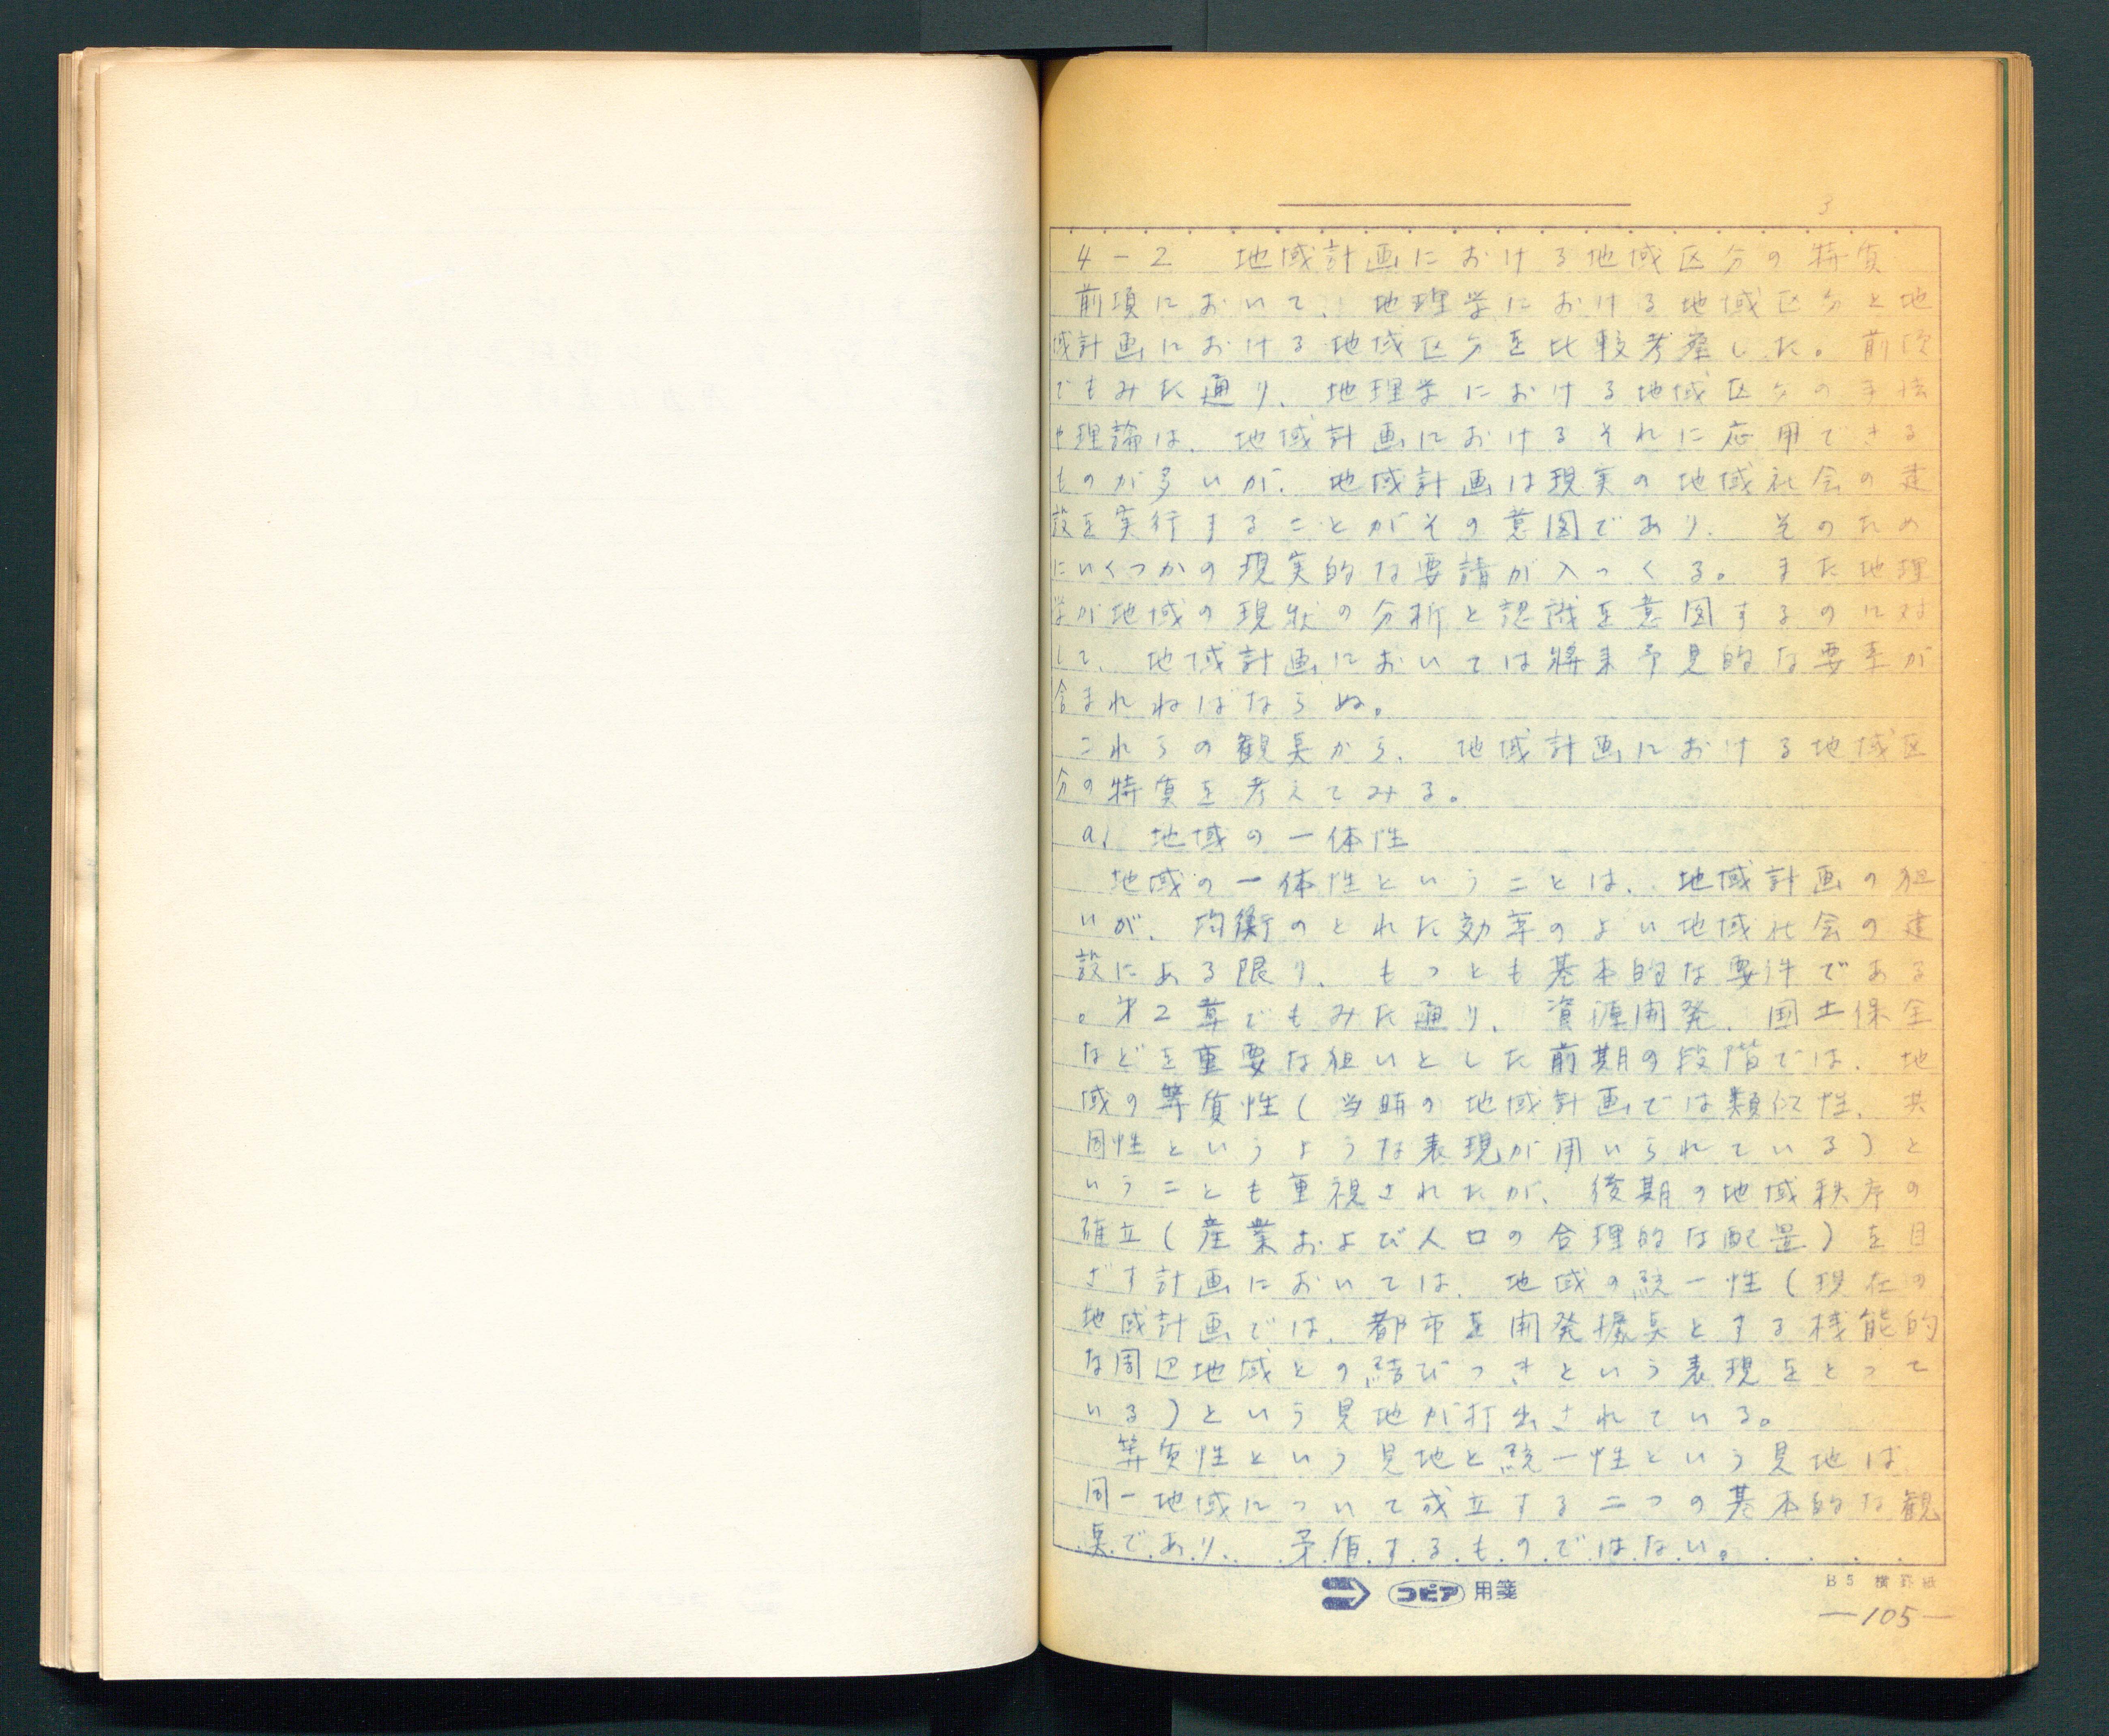 3
4-2 地域計画における地域区分の特質
前項において、地理学における地域区分と地
域計画における地域区分を比較考察した。前項
でもみた通り、地理学における地域区分の手法
や理論は、地域計画におけるそれに応用できる
ものが多いが、地域計画は現実の地域社会の建
設を実行することがその意図であり、そのため
にいくつかの現実的な要請が入つくる。また地理
学が地域の現状の分析と認識を意図するのに対
して、地域計画においては将来予見的な要素が
含まれねばならぬ。
これらの観点から、地域計画における地域区
分の特質を考えてみる。
a) 地域の一体性
地域の一体性ということは、地域計画の狙
いが、均衡のとれた効率のよい地域社会の建
設にある限り、もつとも基本的な要件である
。第2章でもみた通り、資源開発、国土保全
などを重要な狙いとした前期の段階では、地
域の等質性(当時の地域計画では類似性、共
同性というような表現が用いられている)と
いうことも重視されたが、後期の地域秩序の
確立(産業および人口の合理的な配置)を目
ざす計画においては、地域の統一性(現在の
地域計画では、都市を開発拠点とする機能的
な周辺地域との結びつきという表現をとつて
いる)という見地が打出されている。
等質性という見地と統一性という見地は
同一地域について成立する二つの基本的な観
点であり、矛盾するものではない。
コピア 用箋
B5 横罫紙
—105—